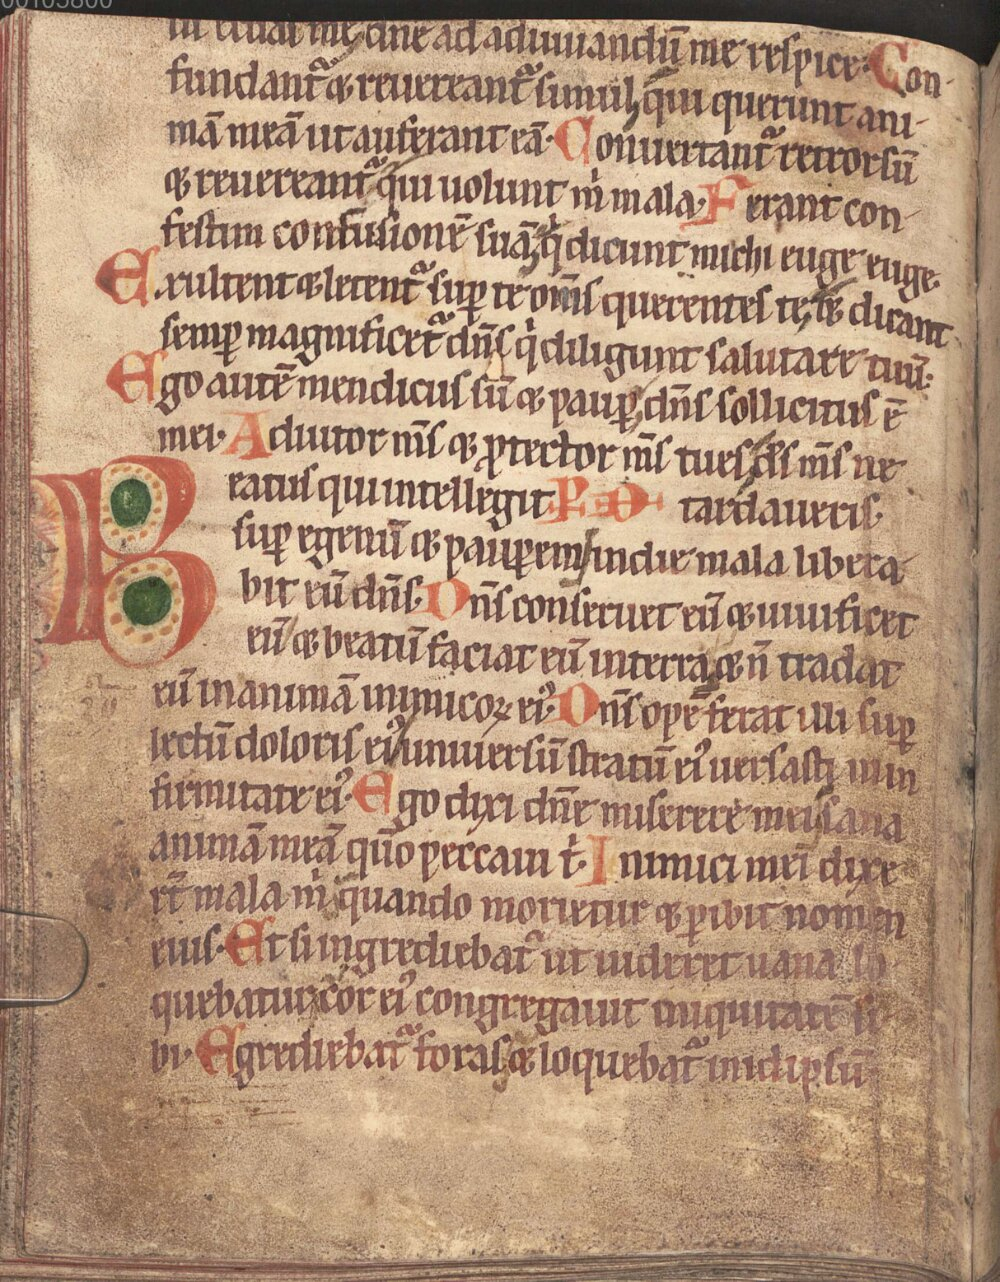 00105800
ut eruat me, dn̄e ad adiuuandū me respice. Con-
fundant᷑ & reuereant᷑ simul, q̄ui querunt ani-
mā meā ut auferant eā. Conuertant᷑ retrorsū
& reuereant᷑ qui uolunt m̄ mala, Ferant con-
festim confusionē suā, q̇ dicunt michi euge euge
Exultent & letent᷑ sup̄ te om̄s querentes te, & dicant
semp̄ magnificet᷑ dn̄s q̇ diligunt salutare tuū.
Ego autē mendicus sū & paup̄, dn̄s sollicitus ē
mei. Adiutor m̄s & p̄tector m̄s tu es, ds̄ m̄s ne
Beatus qui intellegit tardaueris
sup̄ egenū & paup̄em, in die mala libera-
bit eū dn̄s. Dn̄s conseruet eū & uiuificet
eū, & beatū faciat eū in terra, & n̄ tradat
eū in animā inimicoꝝ ei᷒. Dn̄s opē ferat illi sup̄
lectū doloris ei᷒, uniuersū stratū ei᷒ uersasti in in
firmitate ei᷒. Ego dixi dn̄e miserere mei, sana
animā meā qūo peccaui t̄. Inimici mei dixe
rt̄ mala m̄, quando morietur & p̄ibit nomen
eius. Et si ingrediebat᷑ ut uideret uana lo-
quebatur, cor ei᷒ congregauit iniquitatē si
bi. Egrediebat᷑ foras, & loquebat᷑ in idipsū